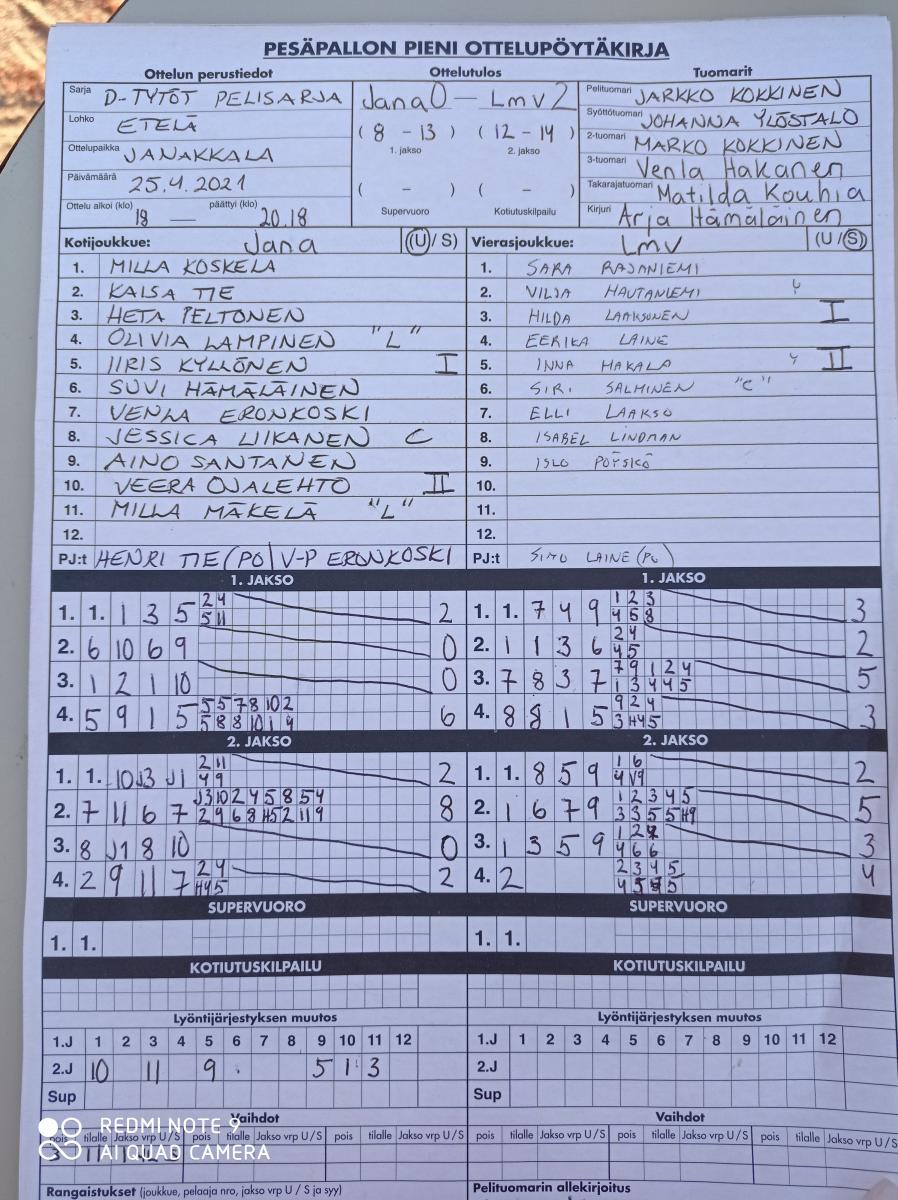 PESÄPALLON PIENI OTTELUPÖYTÄKIRJA
Ottelun perustiedot Ottelutulos Tuomarit
Sarja D-TYTÖT PELISARJA
Lohko ETELÄ
Ottelupaikka JANAKKALA
Päivämäärä 25.4.2021
Ottelu alkoi (klo) 18 — päättyi (klo) 20.18
Jana 0 — Lmv 2
( 8 - 13 ) ( 12 - 14 )
1. jakso 2. jakso
( - ) ( - )
Supervuoro Kotiutuskilpailu
Pelituomari JARKKO KOKKINEN
Syöttötuomari JOHANNA YLÖSTALO
2-tuomari MARKO KOKKINEN
3-tuomari Venla Hakanen
Takarajatuomari Matilda Kouhia
Kirjuri Arja Hämäläinen
Kotijoukkue: Jana (U/S)
1. MILLA KOSKELA
2. KAISA TIE
3. HETA PELTONEN
4. OLIVIA LAMPINEN "L"
5. IIRIS KYLLÖNEN I
6. SUVI HÄMÄLÄINEN
7. VENLA ERONKOSKI
8. JESSICA LIIKANEN C
9. AINO SANTANEN
10. VEERA OJALEHTO II
11. MILLA MÄKELÄ "L"
12.
PJ:t HENRI TIE (PO) V-P ERONKOSKI
Vierasjoukkue: Lmv (U/S)
1. SARA RAJANIEMI
2. VILJA HAUTANIEMI
3. HILDA LAAKSONEN I
4. EERIKA LAINE
5. INNA MAKALA II
6. SIRI SALMINEN "C"
7. ELLI LAAKSO
8. ISABEL LINDMAN
9. ISLO PÖYSKÖ
10.
11.
12.
PJ:t SIMO LAINE (PO)
1. JAKSO
1. 1. 1 3 5 2 4 2
5 11
2. 6 10 6 9 0
3. 1 2 1 10 0
4. 5 9 1 5 5 5 7 8 10 2 6
5 8 8 10 1 9
1. JAKSO
1. 1. 7 4 9 1 2 3 3
4 5 8
2. 1 1 3 6 2 4 2
4 5
3. 7 8 3 7 7 9 1 2 4 5
1 3 4 4 5
4. 8 8 1 5 9 2 4 3
3 H4 5
2. JAKSO
1. 1. 10 J3 J1 2 11 2
4 9
2. 7 11 6 7 J3 10 2 4 5 8 5 4 8
2 9 6 8 H5 2 11 9
3. 8 J1 8 10 0
4. 2 9 11 7 2 4 2
H4 5
2. JAKSO
1. 1. 8 5 9 1 6 2
4 V9
2. 1 6 7 9 1 2 3 4 5 5
3 3 5 5 H9
3. 1 3 5 9 1 2 3
4 6 6
4. 2 2 3 4 5 4
4 5 5
SUPERVUORO SUPERVUORO
1. 1. 1. 1.
KOTIUTUSKILPAILU KOTIUTUSKILPAILU
Lyöntijärjestyksen muutos Lyöntijärjestyksen muutos
1.J 1 2 3 4 5 6 7 8 9 10 11 12 1.J 1 2 3 4 5 6 7 8 9 10 11 12
2.J 10 11 9 5 1 3 2.J
Sup Sup
Vaihdot Vaihdot
pois tilalle Jakso vrp U/S pois tilalle Jakso vrp U/S pois tilalle Jakso vrp U/S pois tilalle Jakso vrp U/S pois tilalle Jakso vrp U/S pois tilalle Jakso vrp U/S
REDMI NOTE 9
AI QUAD CAMERA
Rangaistukset (joukkue, pelaaja nro, jakso vrp U / S ja syy) Pelituomarin allekirjoitus